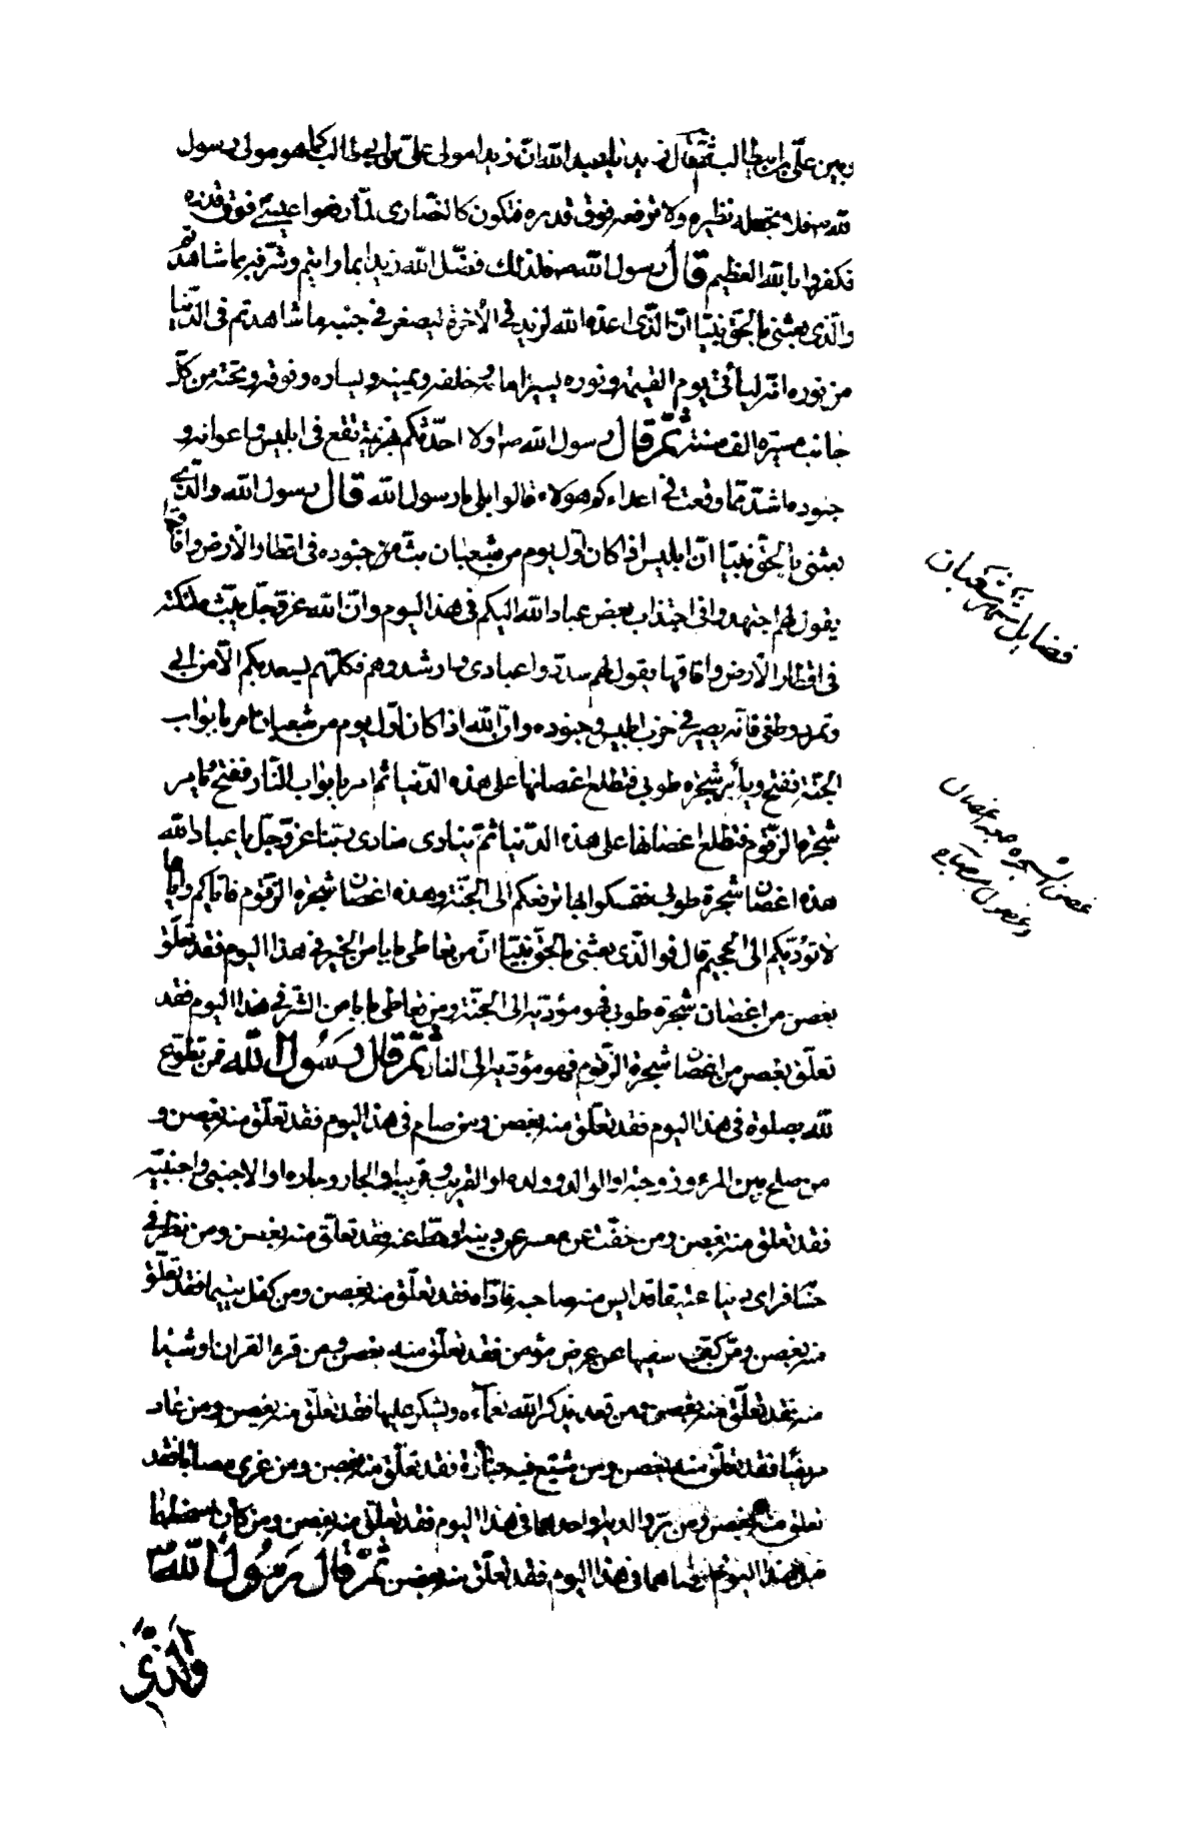 وبين علي بن ابيطالب ثم قال زيد يا عبد الله ان زيدا مولى علي بن ابي طالب كما هو مولى رسول
الله فلا تجعله نظيره ولا ترفعه فوق قدره فتكون كالنصارى لما رفعوا عيسى فوق قدره
فكفروا بالله العظيم قال رسول الله ص فلذلك فضل الله زيدا بما رايتم وشرفه بما شاهدتم
والذي بعثني بالحق نبيا ان الذي اعده الله لزيد في الاخرة ليصغر في جنبه ما شاهدتم في الدنيا
من نوره انه ليأتي يوم القيمة ونوره يسير امامه وخلفه ويمينه ويساره وفوقه وتحته من كل
جانب مسيرة الف سنة ثم قال رسول الله ص اولا احدثكم بهزيمة تقع في ابليس واعوانه و
جنوده اشد مما وقعت في اعداءكم هولاء قالوا بلى يا رسول الله قال رسول الله والذي
بعثني بالحق نبيا ان ابليس اذا كان اول يوم من شعبان بث جنوده في اقطار الارض وافاقها
يقول لهم اجتهدوا في اجتذاب بعض عباد الله اليكم في هذا اليوم وان الله عز وجل يبث ملئكته
في اقطار الارض وافاقها يقول لهم سددوا عبادي وارشدوهم فكلهم يسعد بكم الا من ابى
وتمرد وطغى فانه يصير في حزب ابليس وجنوده وان الله اذا كان اول يوم من شعبان امر بابواب
الجنة ففتح ويأمر شجرة طوبى فتطلع اغصانها على هذه الدنيا ثم امر بابواب النار ففتح ويامر
شجرة الزقوم فتطلع اغصانها على هذه الدنيا ثم ينادي منادى ربنا عز وجل يا عباد الله
هذه اغصان شجرة طوبى فتمسكوا بها ترفعكم الى الجنة وهذه اغصان شجرة الزقوم فاياكم واياها
لا تؤديكم الى الجحيم قال فوالذي بعثني بالحق نبيا ان من تعاطى بابا من الخير في هذا اليوم فقد تعلق
بغصن من اغصان شجرة طوبى فهو مؤديه الى الجنة ومن تعاطى بابا من الشر في هذا اليوم فقد
تعلق بغصن من اغصان شجرة الزقوم فهو مؤديه الى النار ثم قال رسول الله فمن تطوع
لله بصلوة في هذا اليوم فقد تعلق منه بغصن ومن صام في هذا اليوم فقد تعلق منه بغصن و
من صلح بين المرء وزوجته او الوالد وولده او القريب وقريبه او الجار وجاره او الاجنبي واجنبيه
فقد تعلق منه بغصن ومن خفف عن معسر عن دينه او حط عنه فقد تعلق منه بغصن ومن نظر في
حسابه فراى دينا عتيقا قد ايس منه صاحبه فاداه فقد تعلق منه بغصن ومن كفل يتيما فقد تعلق
منه بغصن ومن كف سفيها عن عرض مؤمن فقد تعلق منه بغصن ومن قرء القران او شيئا
منه فقد تعلق منه بغصن ومن قعد يذكر الله نعماءه ويشكر عليها فقد تعلق منه بغصن ومن عاد
مريضا فقد تعلق منه بغصن ومن شيع فيه جنازة فقد تعلق منه بغصن ومن عزى مصابا فقد
تعلق منه بغصن ومن بر والديه او احدهما في هذا اليوم فقد تعلق منه بغصن ومن كان اسخطهما
قبل هذا اليوم فارضاهما في هذا اليوم فقد تعلق منه بغصن ثم قال رسول الله
والذي
فضايل شهر شعبان